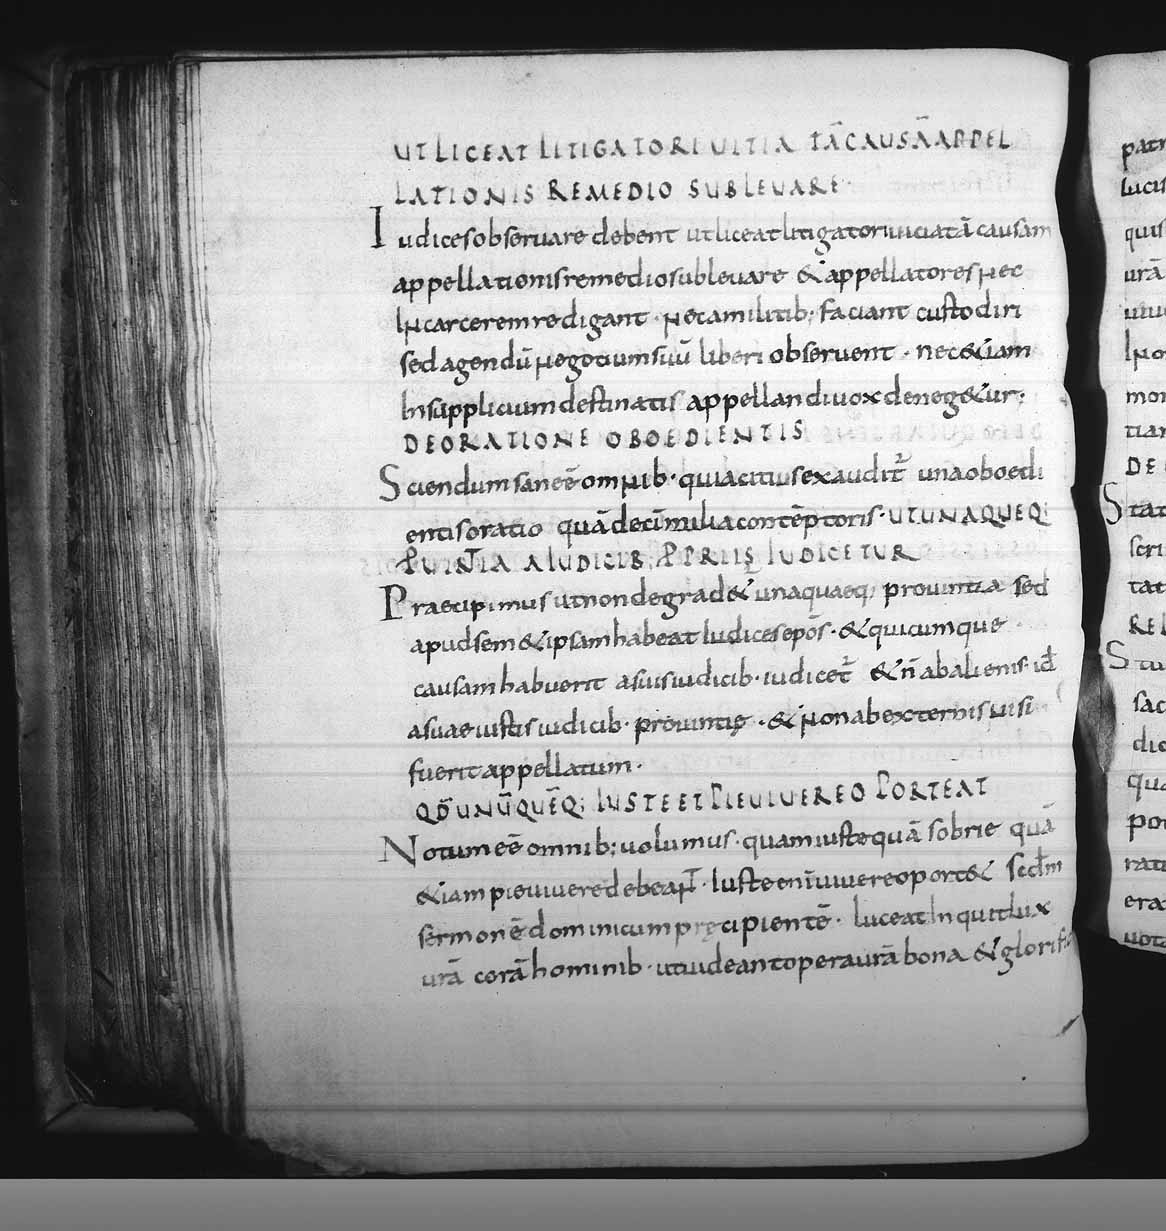 UT LICEAT LITIGATORI UITIATĀ CAUSĀ APPEL
LATIONIS REMEDIO SUBLEUARE·
Iudices obseruare debent ut liceat litigatori uiciatā causam
appellationis remedio subleuare & appellatores nec
In carcerem redigant · nec a militib; faciant custodiri
sed agendū negocium suū liberi obseruent · nec &iam
In supplicium destinatis appellandi uox deneg&ur;
DE ORATIONE OBOEDIENTIS
Sciendum sane ēē omnib· quia citius exaudit̄ una oboedi
entis oratio quā decē milia contēptoris · UT UNAQUEQ;
PUINTIA A IUDICIB; PPRIIS IUDICETUR
Praecipimus ut non degrad& unaquaeq; prouintia sed
apud sem&ipsam habeat Iudices epōs · & quicumque
causam habuerit a suis iudicib· iudicet̄ & ñ ab alienis· id̄
a suae iustis iudicib· prouintię · & non ab externis nisi
fuerit appellatum·
QD̄ UNŪQUĒQ; IUSTE ET PIE UIUERE OPORTEAT
Notum ēē omnib; uolumus · quam iuste quā sobrie quā
&iam pie uiuere debeant · Iuste enī uiuere oport& sed̄m
sermonē dominicum pręcipientē · luceat Inquit lux
urā corā hominib· ut uideant opera urā bona & glorifi
patr
lucis
quis
urā
DE
S tat
scri
tat
REL
S tu
sac
dic
qua
por
rati
era
uot